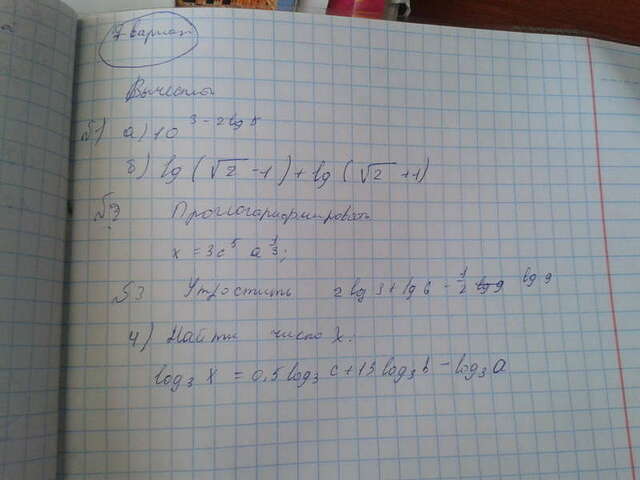 7 вариант
Вычислить
№1 а) 10^3-2lg5
б) lg(√2-1)+lg(√2+1)
№2 Прологарифмировать
x=3c^5 a^1/3;
№3 Упростить 2lg3+lg6-1/2 lg9
4) Найти число X:
log₃X=0,5log₃c+13log₃b-log₃a